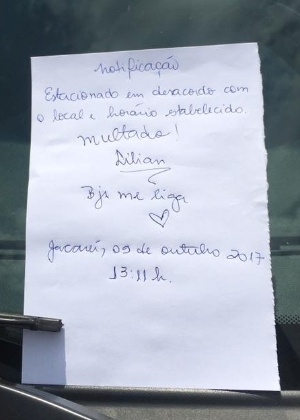 notificação
Estacionado em desacordo com
o local e horário estabelecido.
multado!
Lilian
Bjs me liga
Jacareí, 09 de outubro 2017
13:11 h.